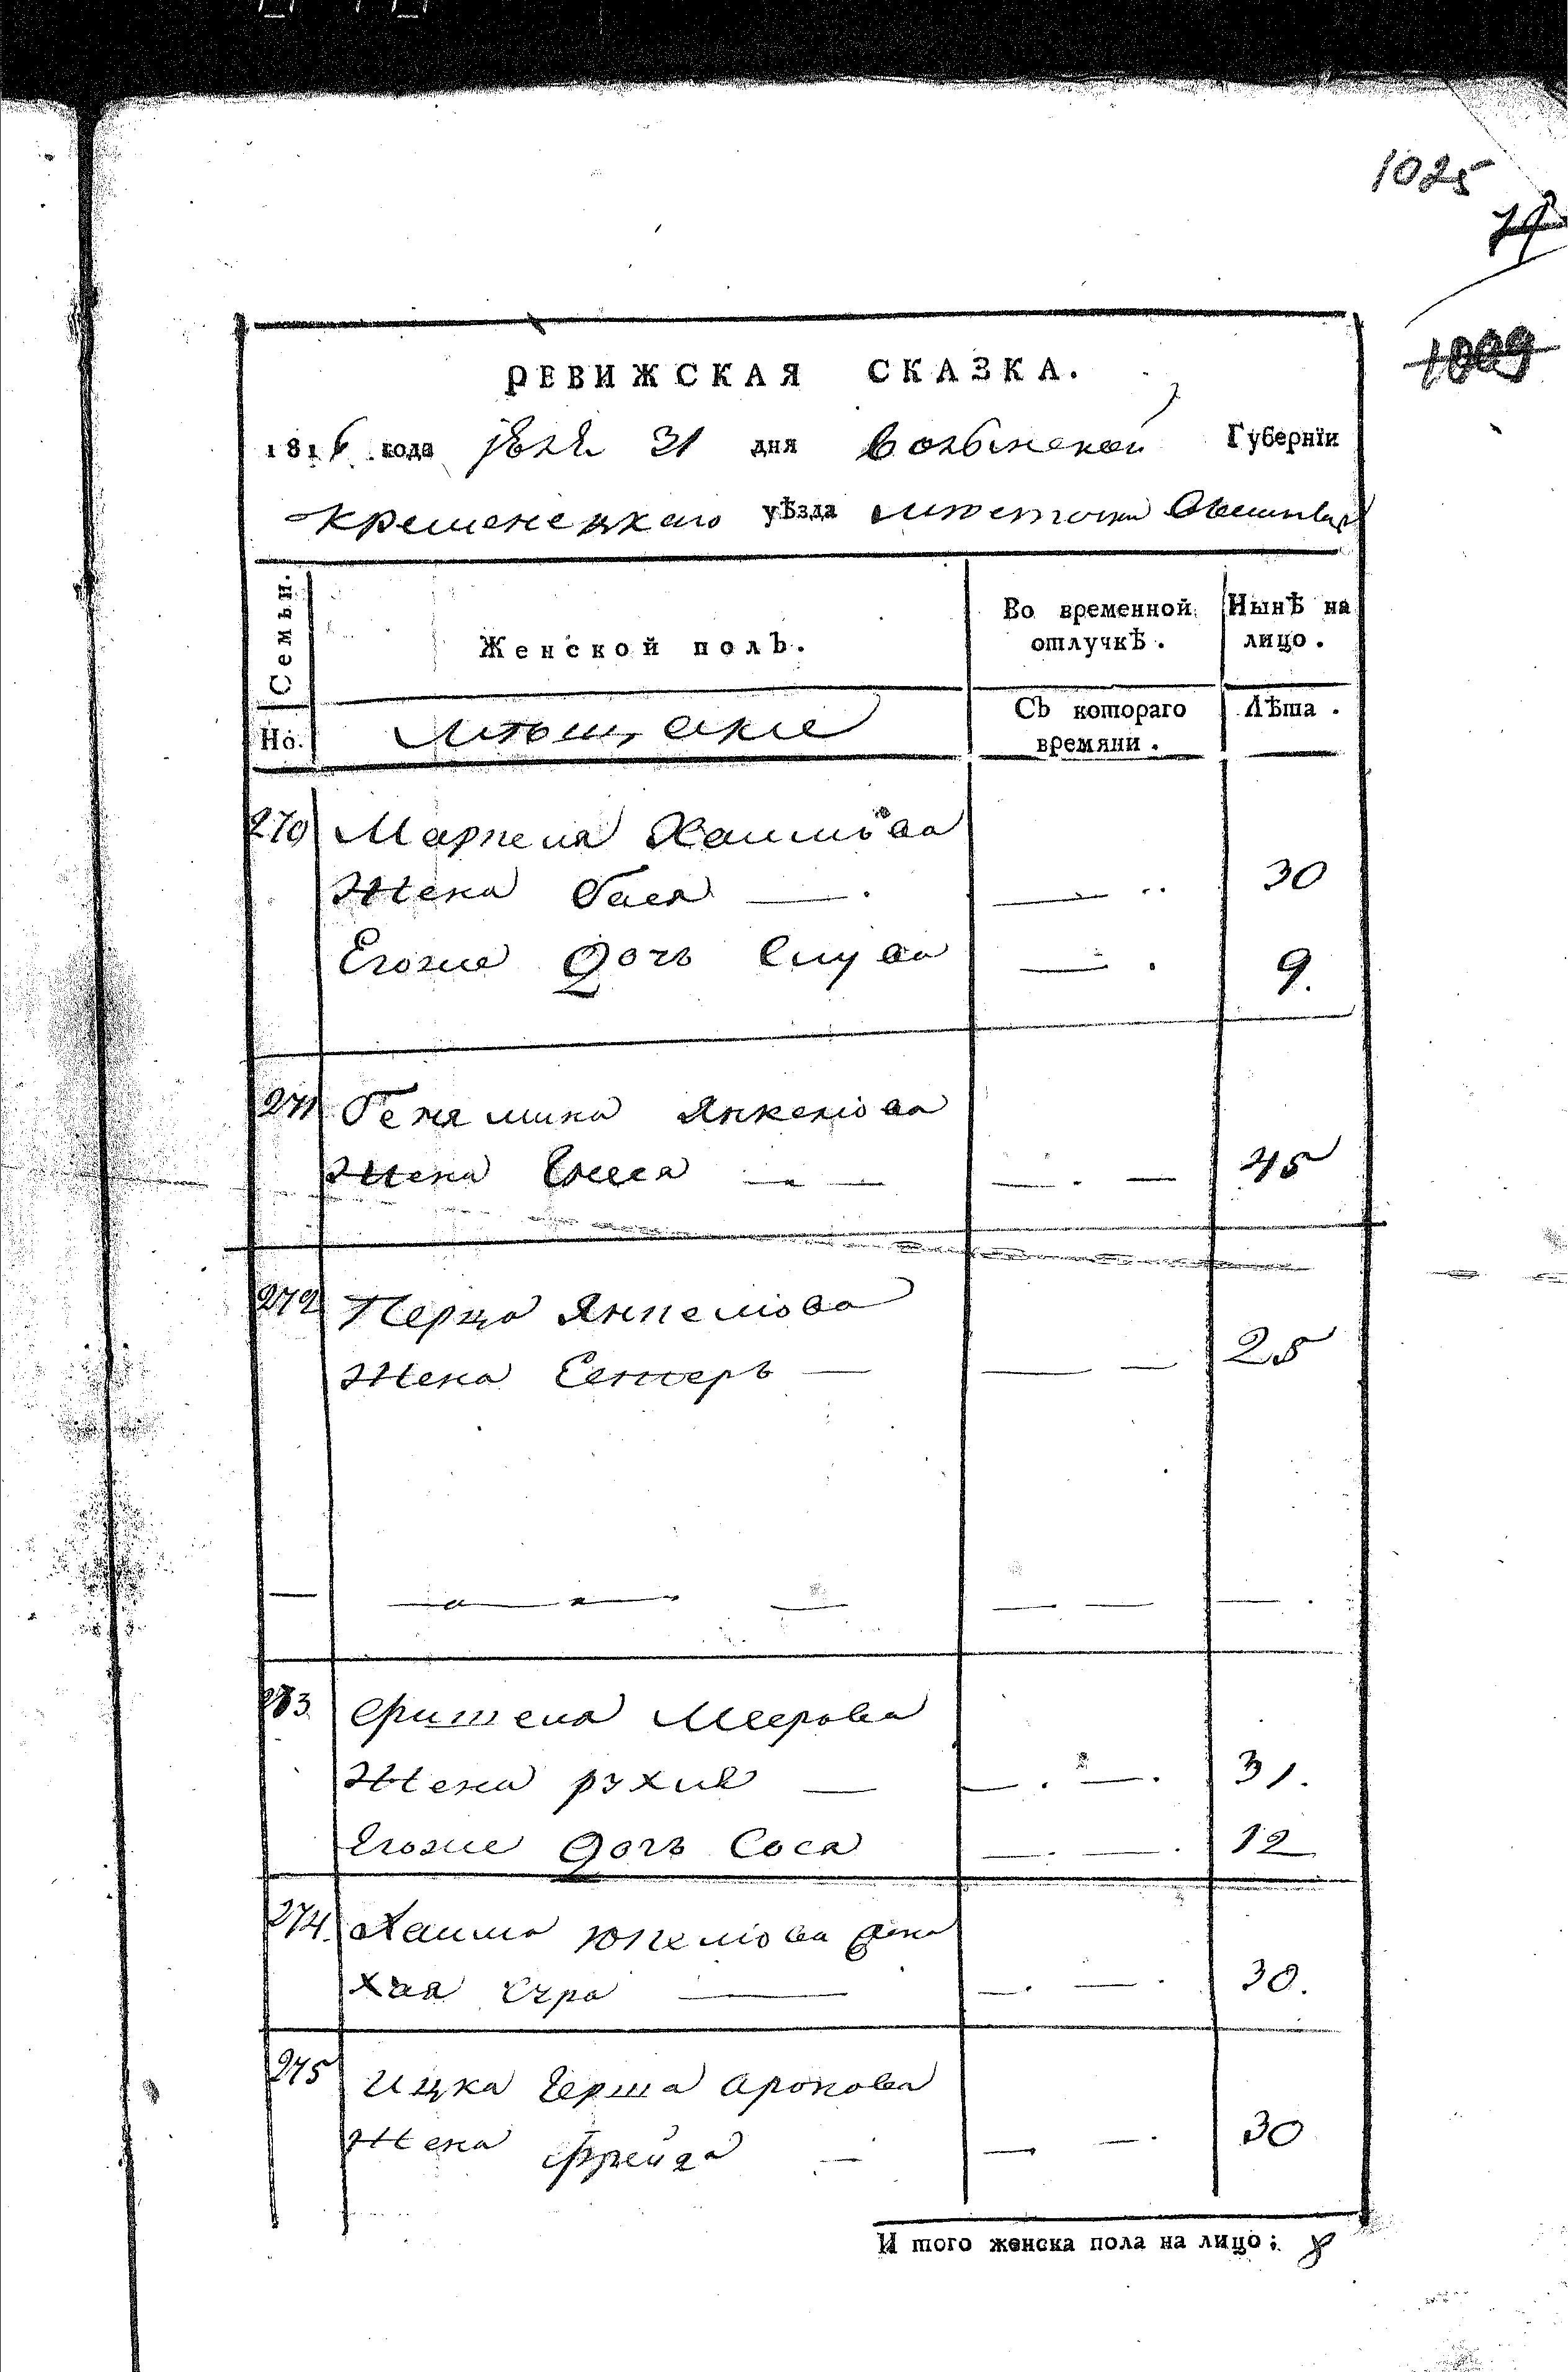 1025
1009
РЕВИЖСКАЯ СКАЗКА.
1816 года 31 дня Волынской Губернїи
Кременецкаго уѣзда местечка
Семьи.
Женской полъ.
Во временной отлучкѣ.
Нынѣ на лицо.
Но.
Мѣщане
Съ котораго времяни.
Лѣта.
270 Маркеля Хаимова
Жена Бася — 30
Егоже дочь — 9.
271 Бенямина Янкелiова
Жена — — 45
272 Перца Янкелiова
Жена Естеръ — — 25
273 Фишеля Меерова
Жена рухля — 31.
Егоже дочь Сося 12
274. Хаима Юкелiова жена
Хая Сура — 30.
275 Ицка Герша Аронова
Жена Фрейда — 30
И того женска пола на лицо: 8